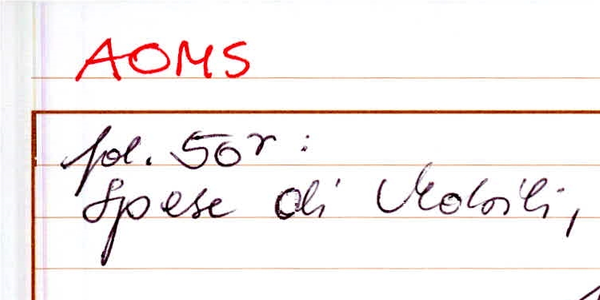 AOMS
fol. 50r:
Spese di Mobili,